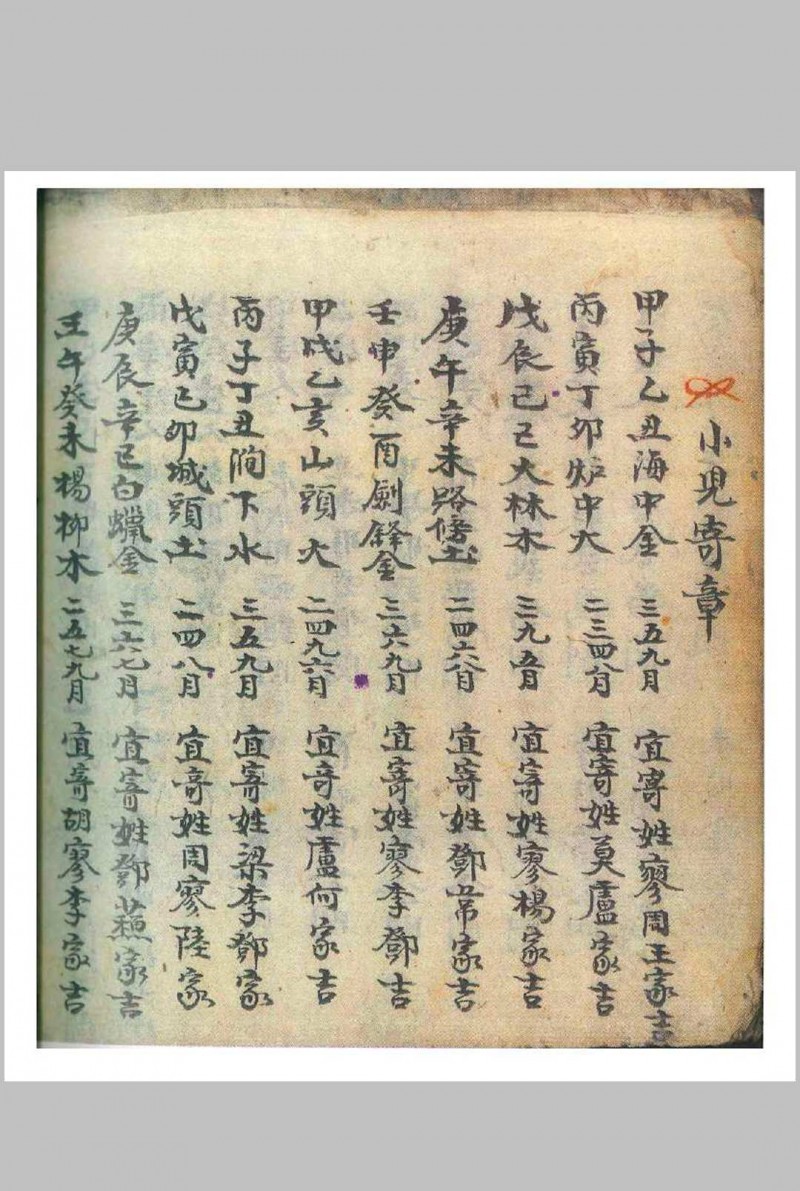 小児寄章
甲子乙丑海中金 三五九月 宜寄姓廖周王家吉
丙寅丁卯炉中火 二三四八月 宜寄姓莫盧家吉
戊辰己巳大林木 三九五月 宜寄姓廖楊家吉
庚午辛未路傍土 二四六八月 宜寄姓鄧常家吉
壬申癸酉劍鋒金 三六九月 宜寄姓廖李鄧吉
甲戌乙亥山頭火 二四九六月 宜寄姓盧何家吉
丙子丁丑澗下水 三五九月 宜寄姓梁李鄧家
戊寅己卯城頭土 二四八月 宜寄姓周廖陸家
庚辰辛巳白蠟金 三六七月 宜寄姓鄧蘇家吉
壬午癸未楊柳木 二五七九月 宜寄胡廖李家吉